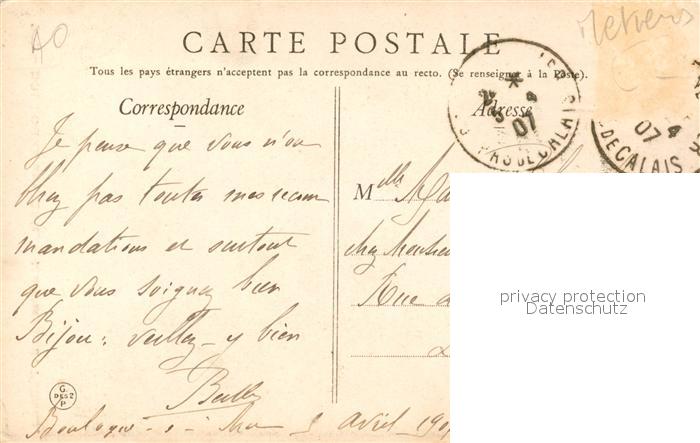 AO
CARTE POSTALE
Tous les pays étrangers n'acceptent pas la correspondance au recto. (Se renseigner à la Poste).
Correspondance
Je pense que vous n'ou
bliez pas toutes mes recom
mandations et surtout
que vous soignez bien
Bijou : veillez-y bien
Boulogne-s-Mer
avril 190
G.
DES 2
P
Adresse
07
PAS DE CALAIS
4
07
DE CALAIS
Mlle
chez Monsieur
Rue
privacy protection
Datenschutz